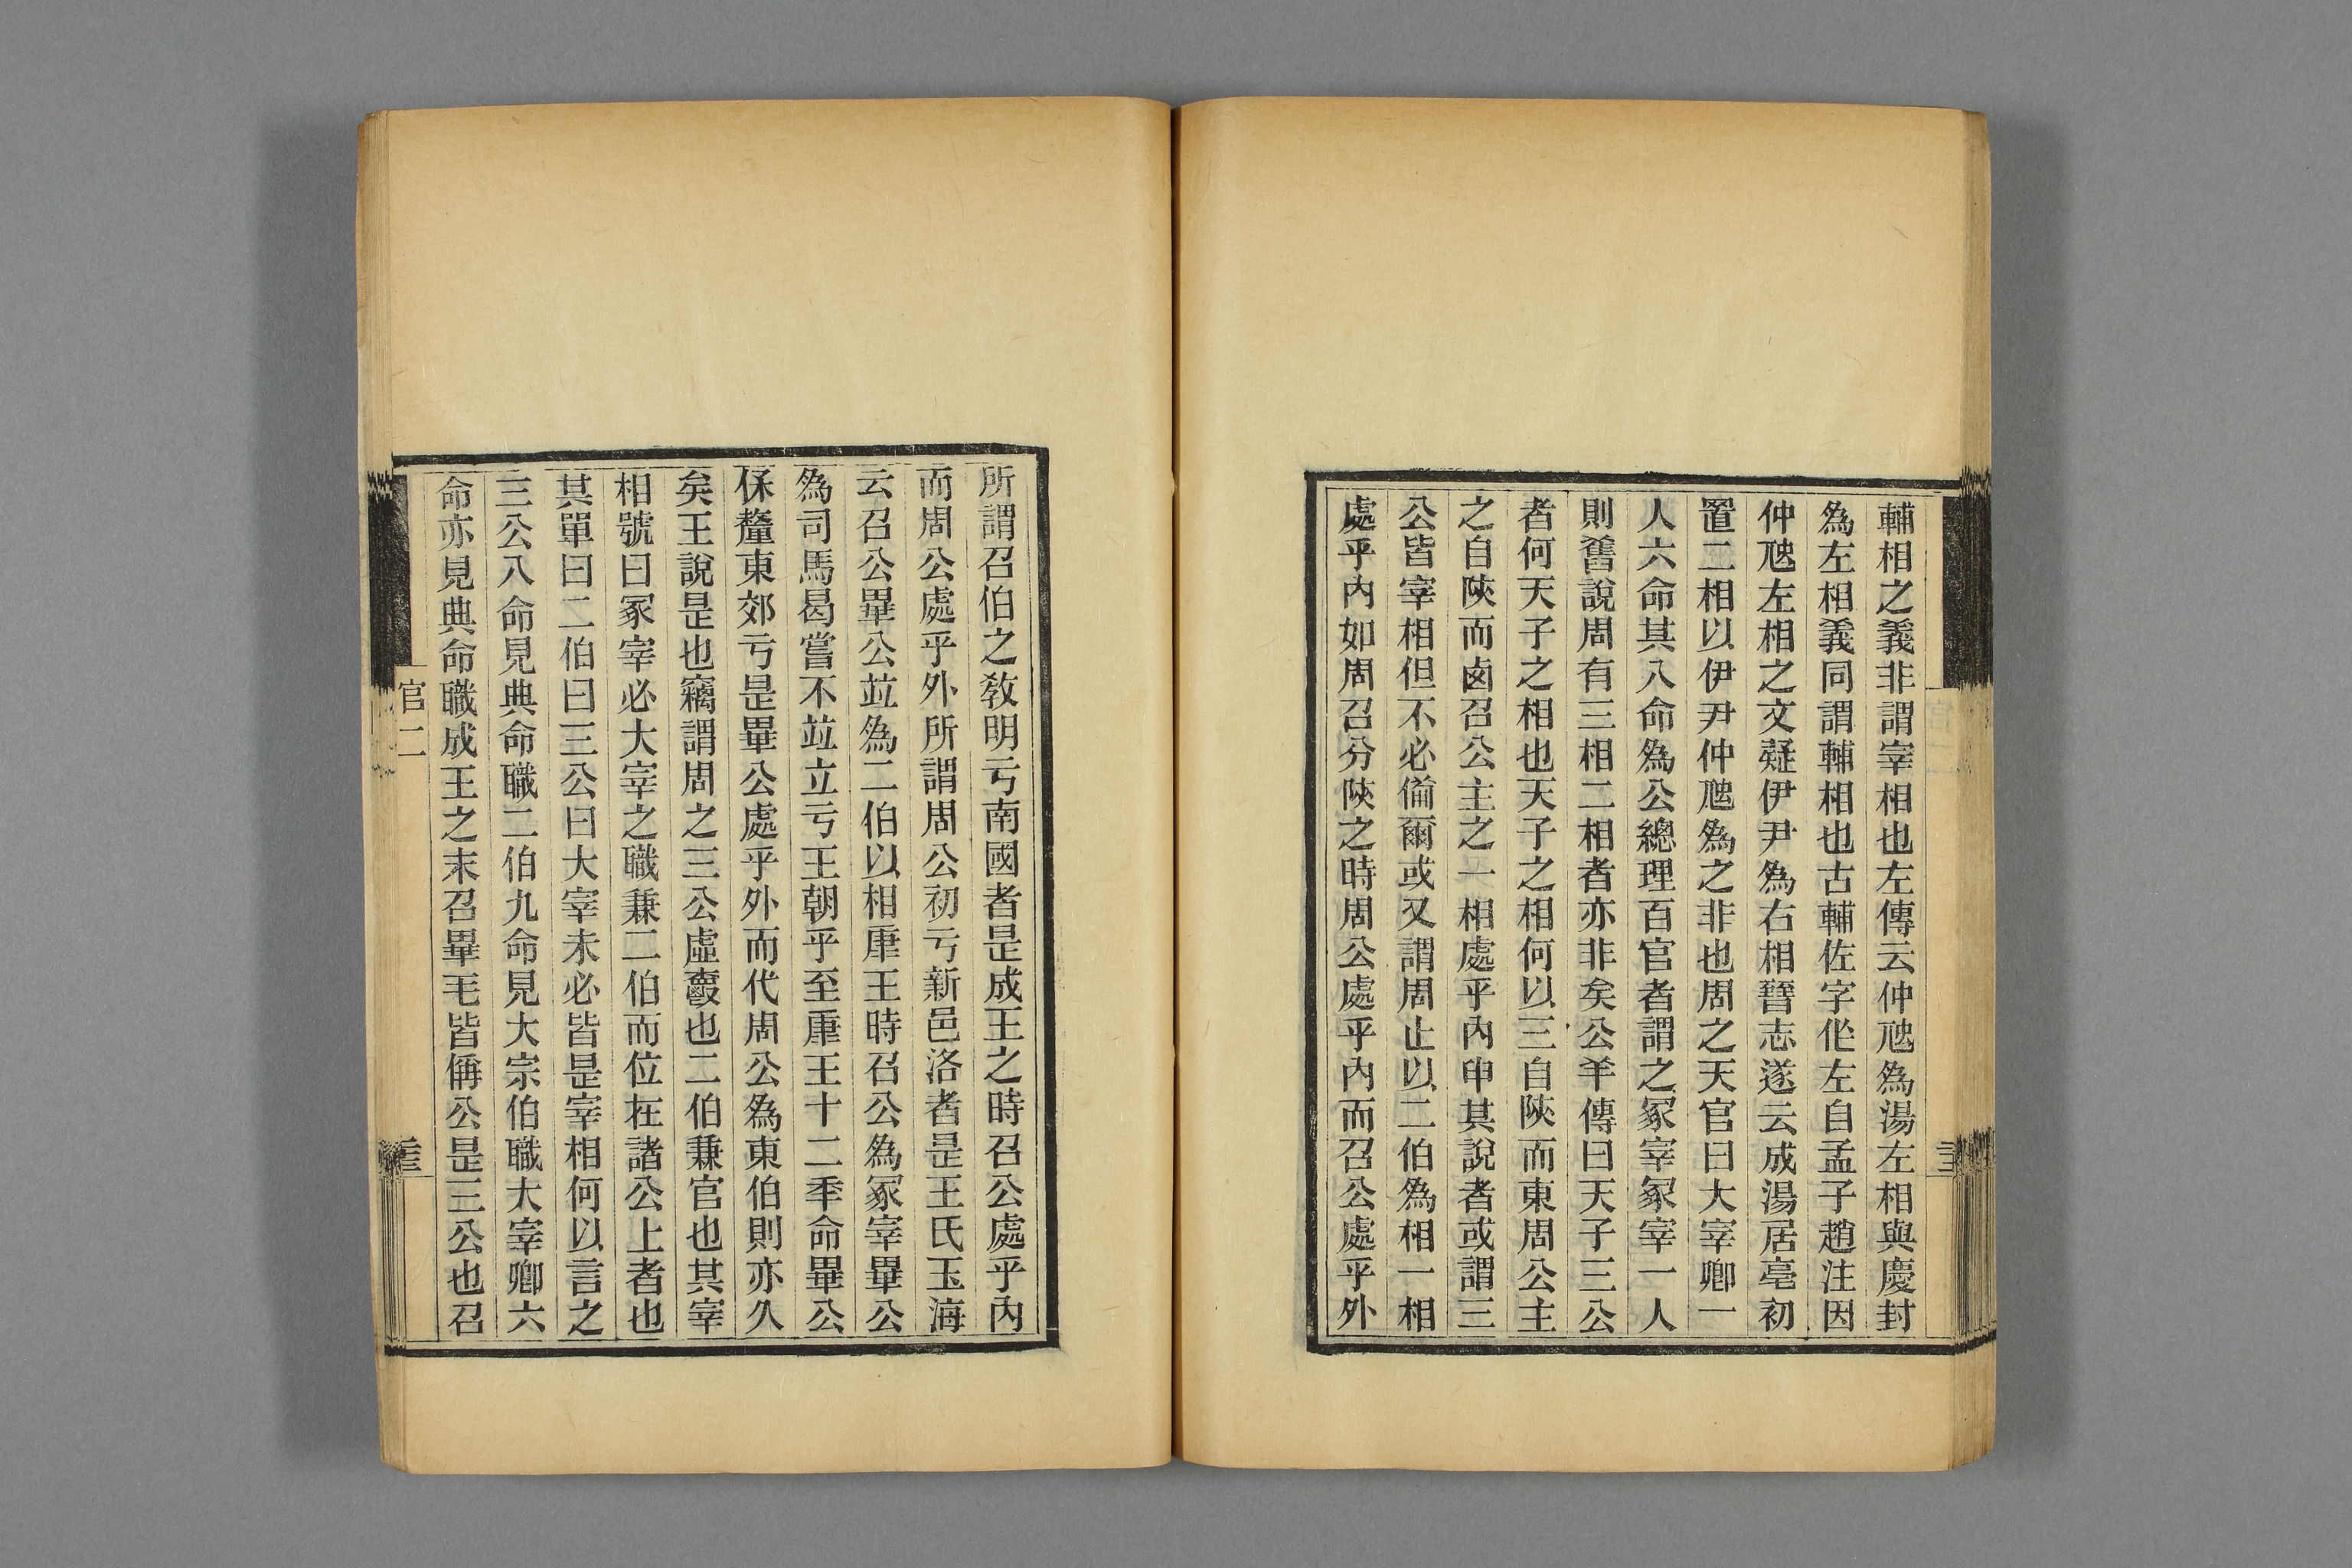 輔相之義非謂宰相也左傳云仲虺爲湯左相與慶封
爲左相義同謂輔相也古輔佐字作左自孟子趙注因
仲虺左相之文疑伊尹爲右相晉志遂云成湯居亳初
置二相以伊尹仲虺爲之非也周之天官曰大宰卿一
人六命其八命爲公總理百官者謂之冢宰冢宰一人
則舊說周有三相二相者亦非矣公羊傳曰天子三公
者何天子之相也天子之相何以三自陝而東周公主
之自陝而鹵召公主之一相處乎內申其說者或謂三
公皆宰相但不必僃爾或又謂周止以二伯爲相一相
處乎內如周召分陝之時周公處乎內而召公處乎外
所謂召伯之敎明亏南國者是成王之時召公處乎內
而周公處乎外所謂周公初亏新邑洛者是王氏玉海
云召公畢公竝爲二伯以相康王時召公爲冢宰畢公
爲司馬曷嘗不竝立亏王朝乎至康王十二秊命畢公
保釐東郊亏是畢公處乎外而代周公爲東伯則亦久
矣王說是也竊謂周之三公虛爵也二伯兼官也其宰
相號曰冢宰必大宰之職兼二伯而位在諸公上者也
其單曰二伯曰三公曰大宰未必皆是宰相何以言之
三公八命見典命職二伯九命見大宗伯職大宰卿六
命亦見典命職成王之末召畢毛皆偁公是三公也召
官二